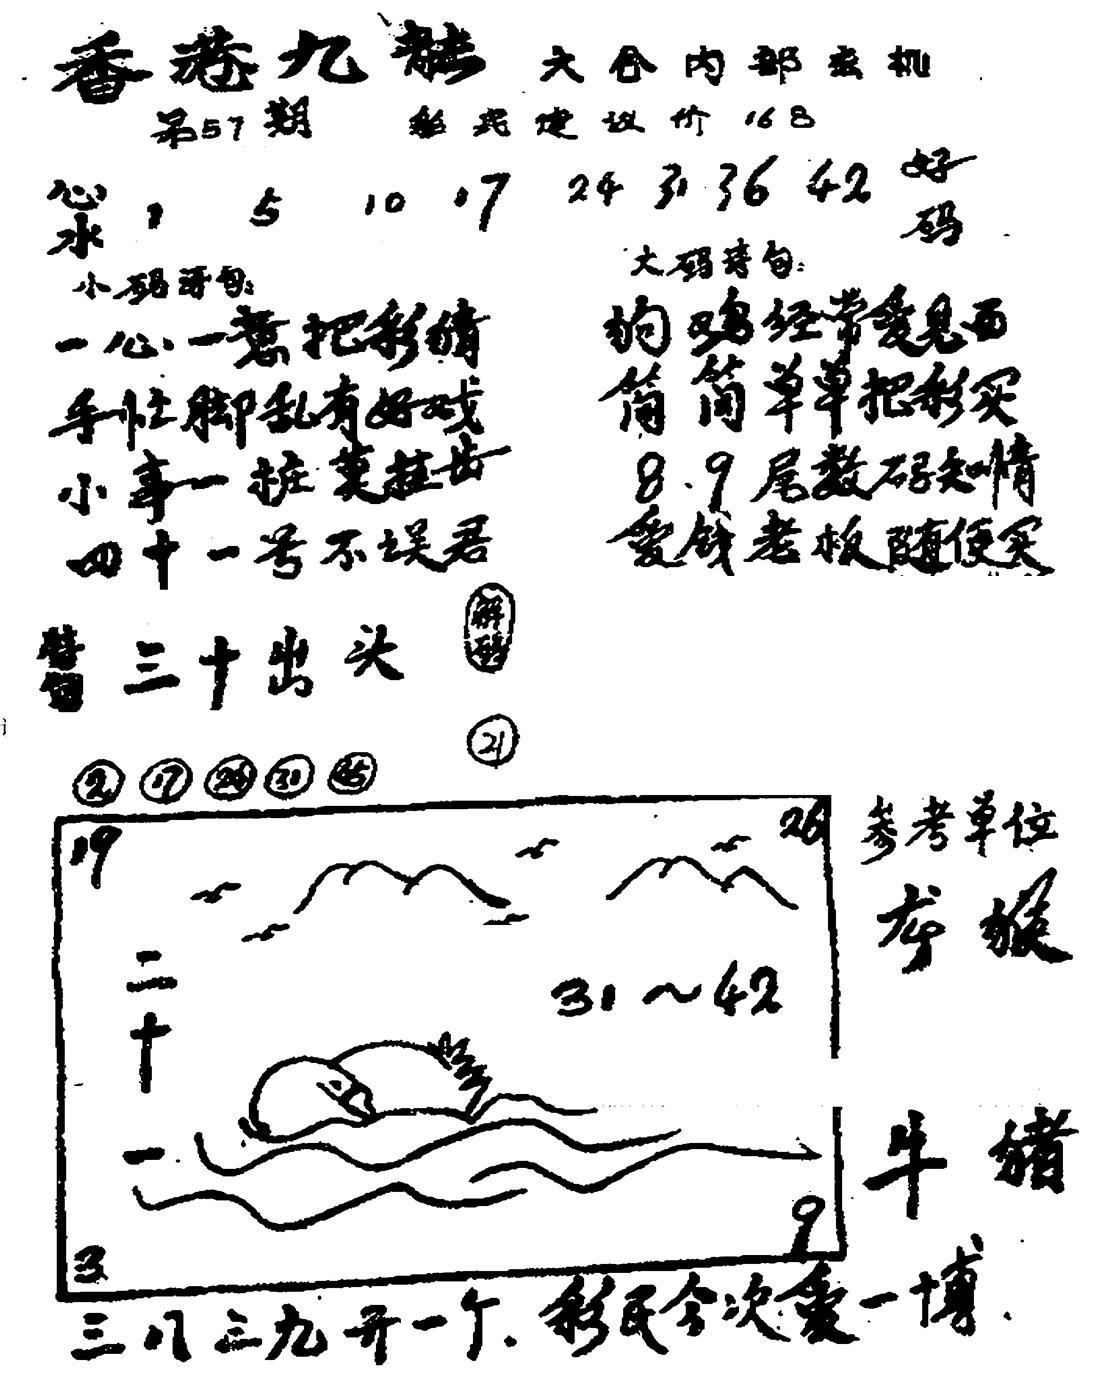 香港九龙 六合内部玄机
第57期 彩民建议价168
心水 1 5 10 17 24 31 36 42 好码
小码诗句:
一心一意把彩猜
手忙脚乱有好戏
小事一桩莫挂齿
四十一号不误君
大码诗句:
狗鸡经常爱见面
简简单单把彩买
8.9尾数码知情
爱钱老板随便买
三十出头
解码
21
2 17 31
19 26
31～42
二十一
3 9
参考单位
龙猴
牛猪
三八三九开一个.彩民今次爱一博.